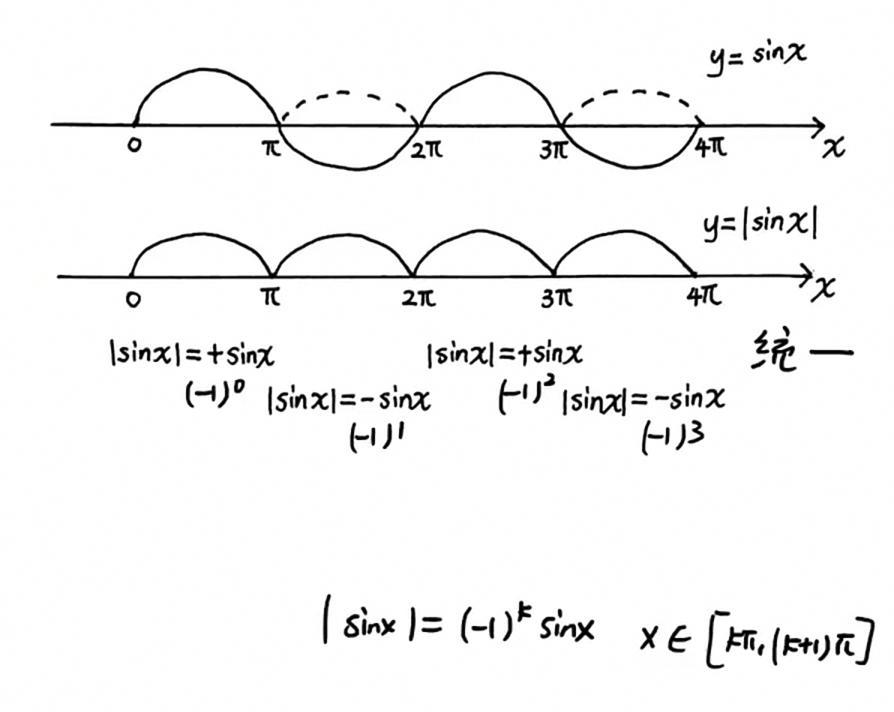 y = sinx
0 π 2π 3π 4π x
y=|sinx|
0 π 2π 3π 4π x
|sinx|=+sinx |sinx|=+sinx 统一
(-1)^0 |sinx|=-sinx (-1)^2 |sinx|=-sinx
(-1)^1 (-1)^3
|sinx|=(-1)^k sinx x∈[kπ,(k+1)π]